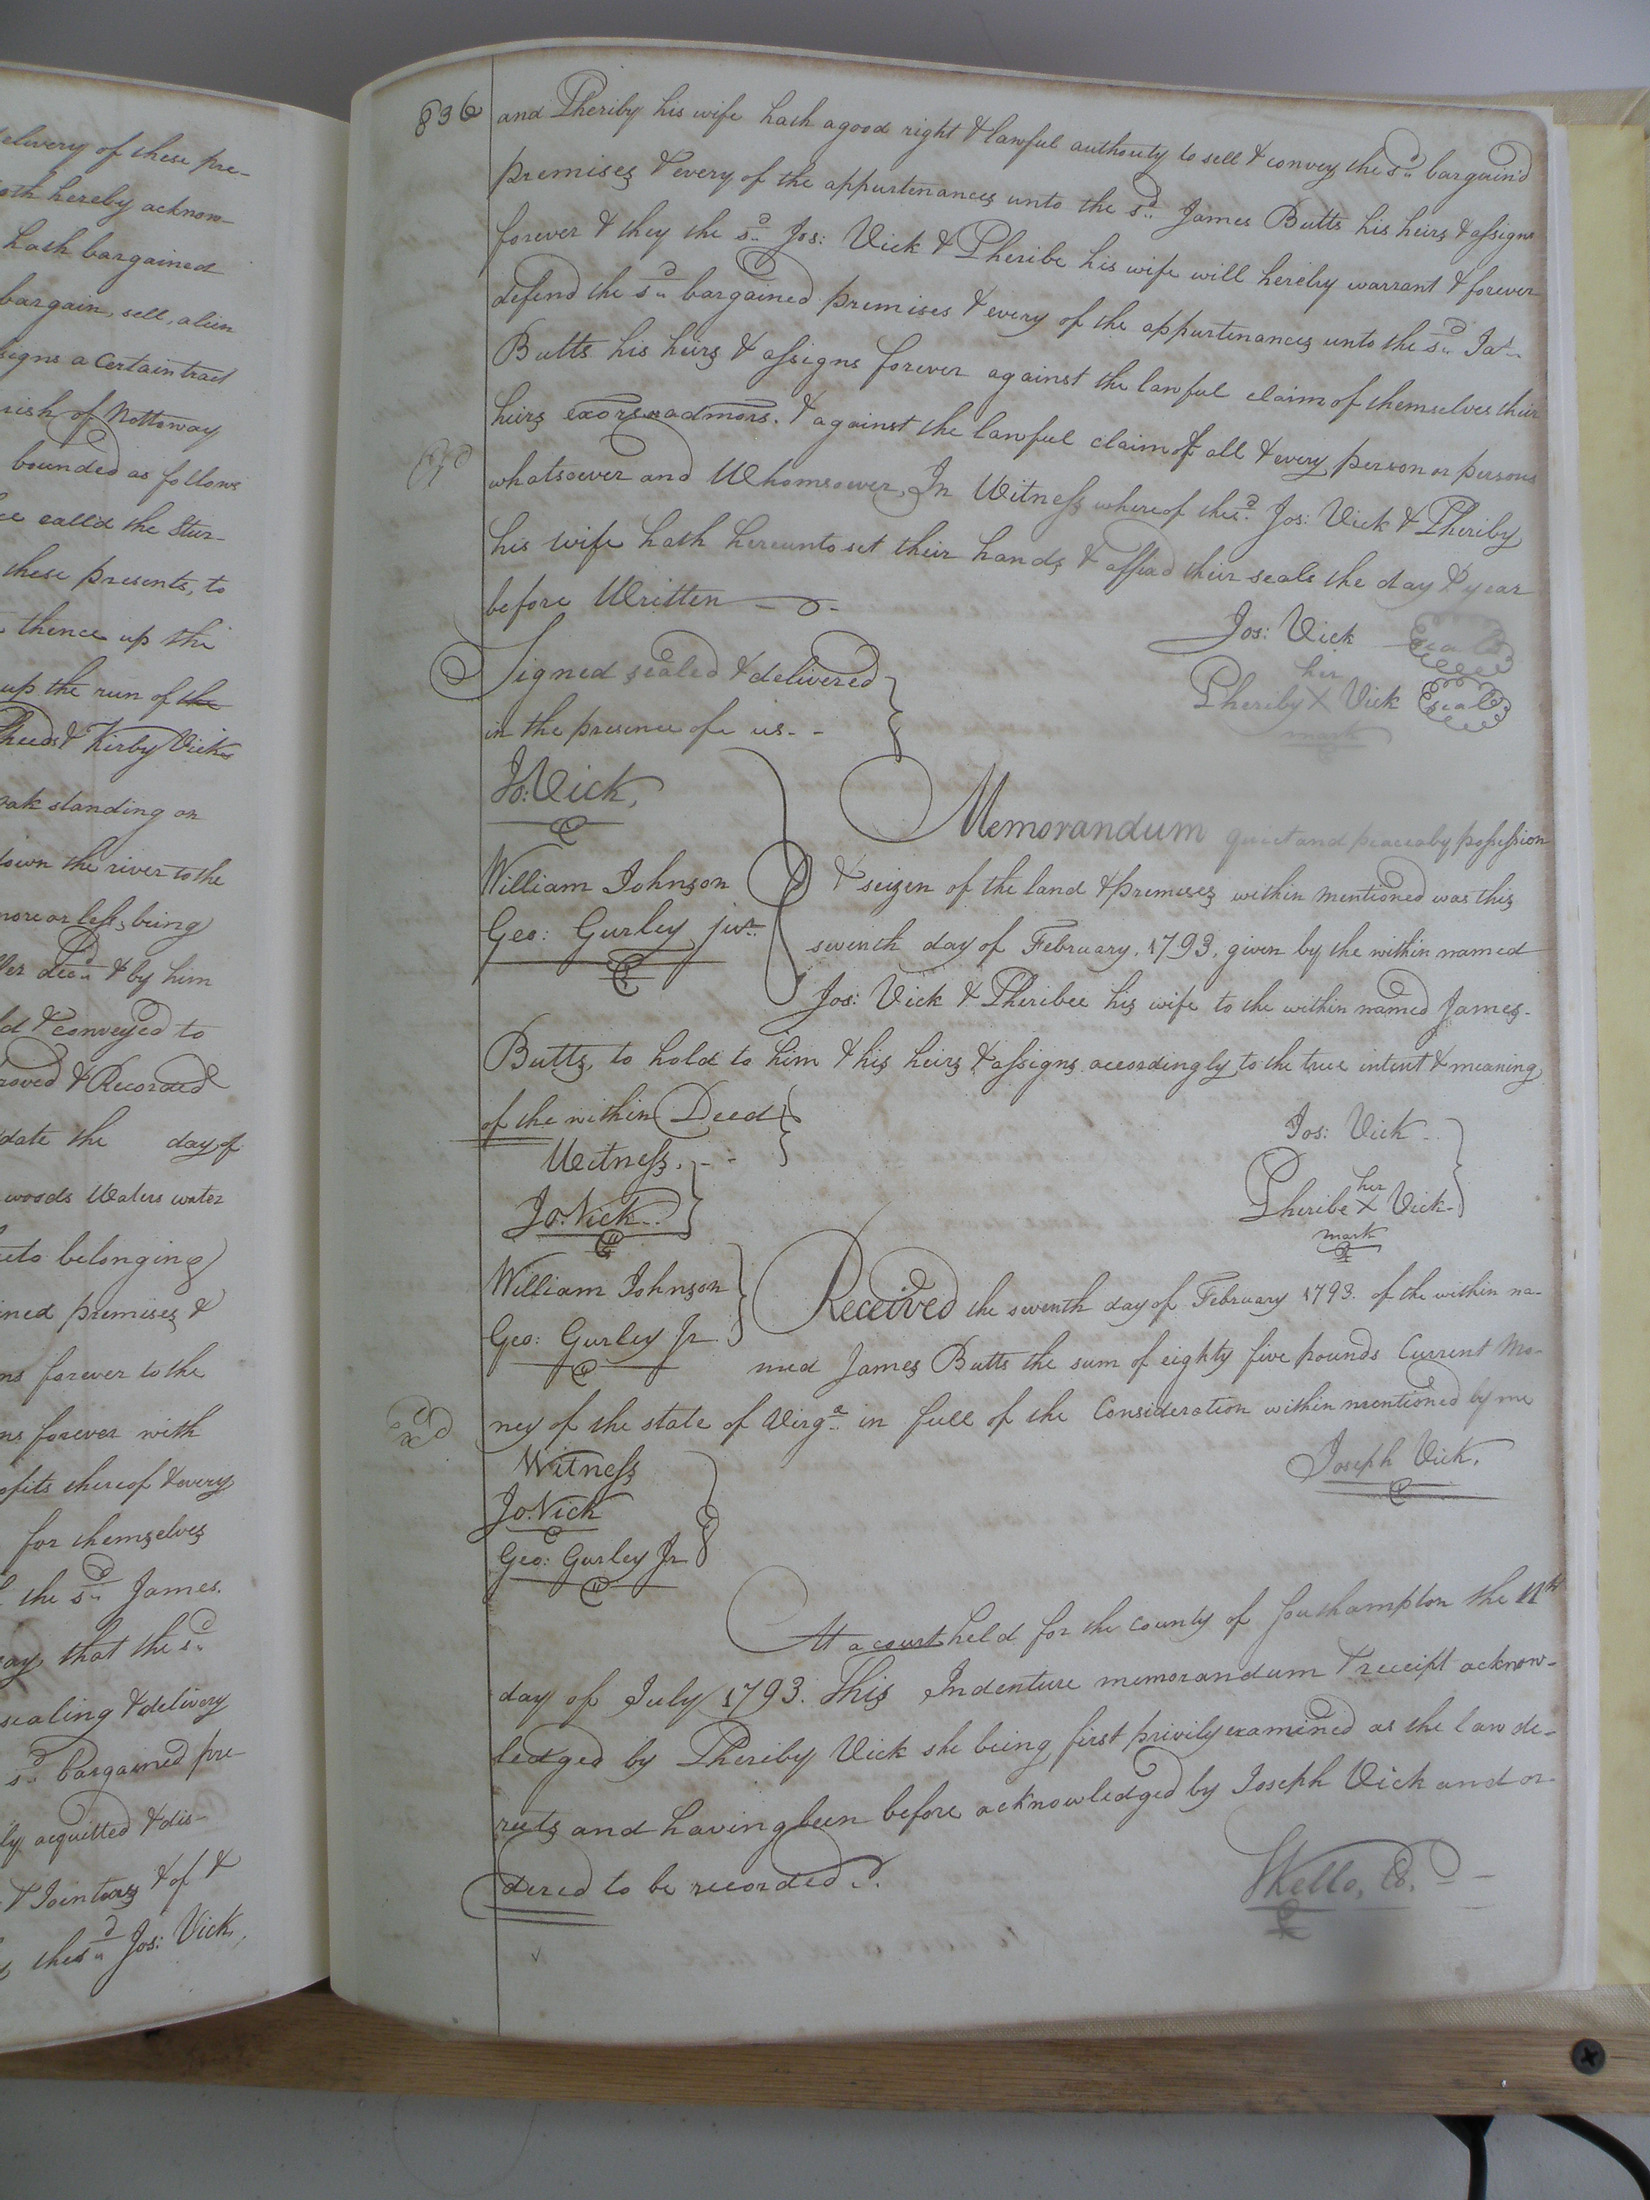 elivery of these pre-
oth hereby acknow-
hath bargained
bargain, sell, alien
signs a Certain tract
rish of Nottoway
bounded as follows
call'd the Stur-
these presents, to
thence up the
up the run of the
& Kirby Vicks
oak standing on
down the river to the
more or less, being
decd & by him
ld & conveyed to
roved & Recorded
date the day of
woods Waters water
belonging
ined premises &
ns forever to the
ns forever with
ofits thereof & every
for themselves
the sd James
that the sd
sealing & delivery
sd bargained pre-
ly acquitted & dis-
& Jointures & of &
the sd Jos: Vick
836
and Pheriby his wife hath a good right & lawful authority to sell & convey the sd bargain'd
premises & every of the appurtenances unto the sd James Butts his heirs & assigns
forever & they the sd Jos: Vick & Pheribe his wife will hereby warrant & forever
defend the sd bargained premises & every of the appurtenances unto the sd Jas
Butts his heirs & assigns forever against the lawful claim of themselves their
heirs exors admors. & against the lawful claim of all & every person or persons
whatsoever and Whomsoever, In Witness whereof the sd Jos: Vick & Pheriby
his wife hath hereunto set their hands & affixd their seals the day & year
before Written
Jos: Vick seal
Signed sealed & delivered
her
Pheriby X Vick seal
mark
in the presence of us
Jo: Vick,
Memorandum quiet and peaceaby possession
William Johnson
& seizen of the land & premises within mentioned was this
Geo: Gurley junr.
seventh day of February, 1793, given by the within named
Jos: Vick & Pheribee his wife to the within named James
Butts, to hold to him & his heirs & assigns accordingly to the true intent & meaning
of the within Deed
Jos: Vick
Witness.
her
Jo. Vick
Pheribe X Vick
mark
William Johnson
Received the seventh day of February 1793. of the within na-
Geo: Gurley Jr
med James Butts the sum of eighty five pounds Current Mo-
ney of the state of Virga in full of the Consideration within mentioned by me
Witness
Joseph Vick.
Jo. Vick
Geo: Gurley Jr
At a court held for the county of Southampton the 11th
day of July 1793. This Indenture memorandum & receipt acknow-
ledged by Pheriby Vick she being first privily examined as the law de-
rects and having been before acknowledged by Joseph Vick and or-
dered to be recorded.
SKello, Cl.